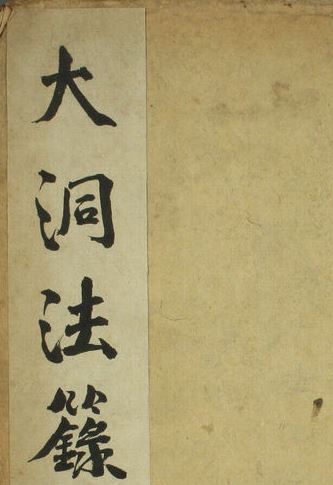 大洞法籙